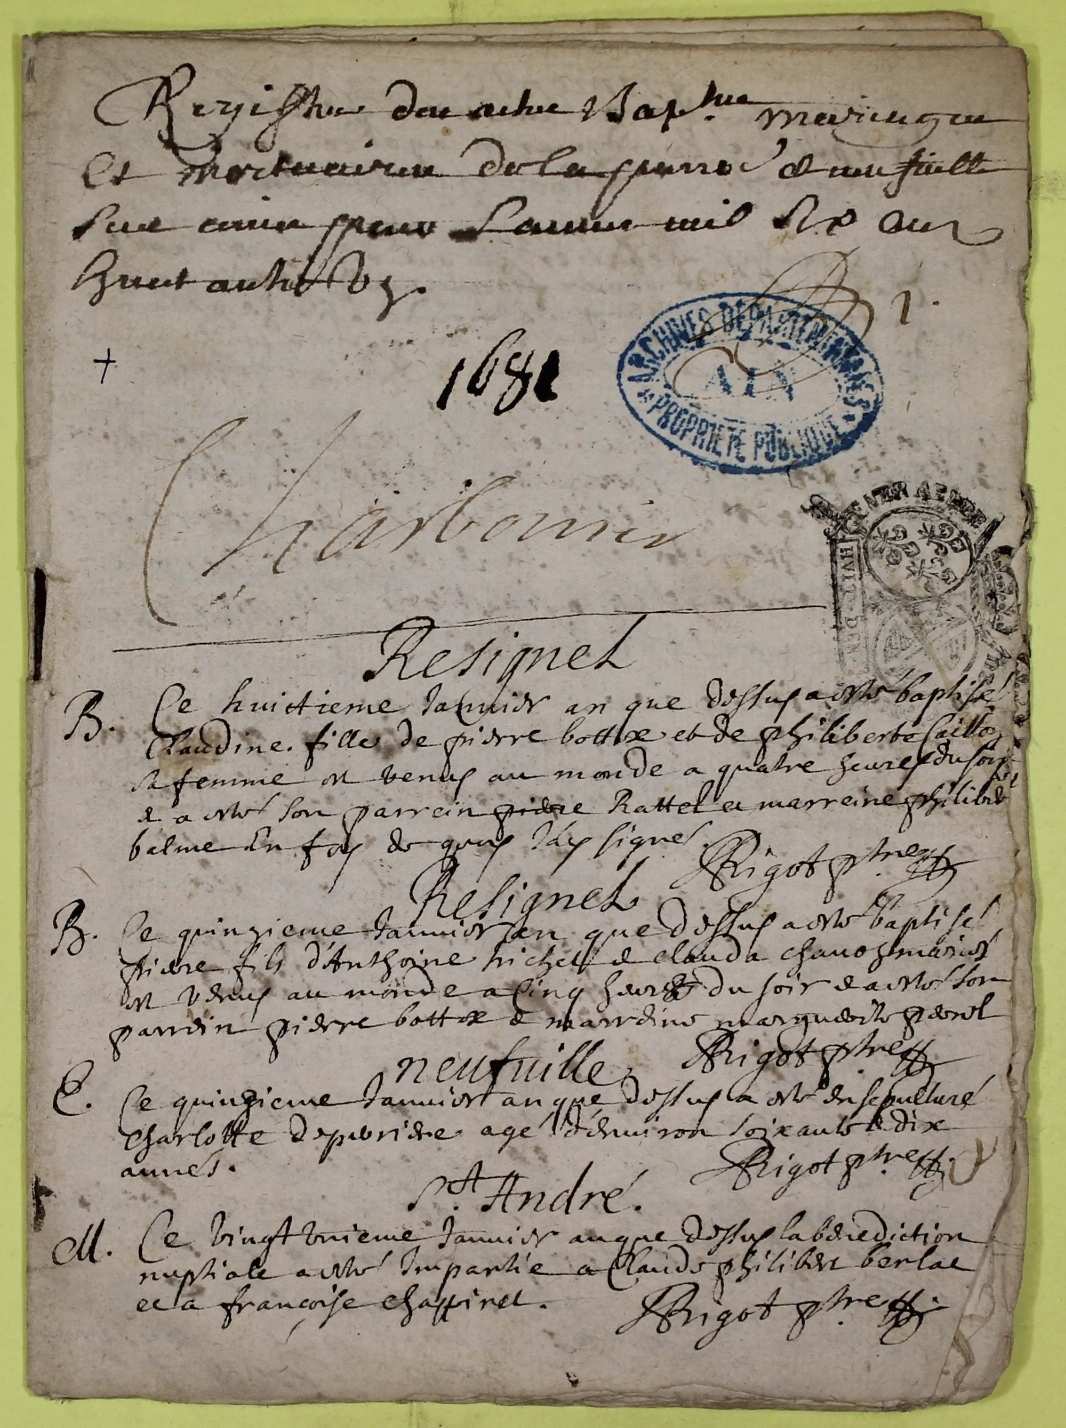 Registre des actes Bap.tres mariages
Et Mortuaires de la parroê de neufville
Sur ain pour Lannee mil Six Cens
huict ante Un.
1.
ARCHIVES DÉPARTEMENTALES
AIN
PROPRIÉTÉ PUBLIQUE
+
1681
Charbonnier
GENER
HVIT DEN
Resignel
B. Ce huictieme Januier an que dessus a esté baptisée
Claudine fille de pierre bottex et de philiberte Caillo
sa femme et venus au monde a quatre heures du soir
et a esté son parrein pierre Rattel et marreine philiberte
balme En foy de quoy J'ay signé. Rigot ptre
Resignel
B. Ce quinzieme Januier an que dessus a esté baptisé
pierre fils d'Anthoine et Clauda mariés
et venus au monde a Cinq heures du soir et a esté son
parrein pierre bottex et marreine marguerite perrel
Rigot ptre
neufuille
E. Ce quinzieme Januier an que dessus a esté ensepulturé
Charlotte agé d'enuiron soixante et dix
annés. Rigot ptre
St. André.
M. Ce Vingt vnieme Januier an que dessus la benediction
nuptiale a esté Impartie a Claude philibert berlae
et a francoise Chappirel. Rigot ptre